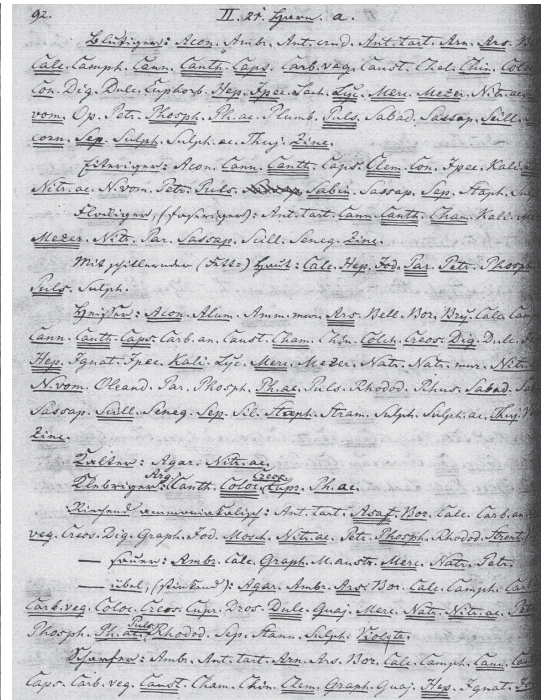 92. II. 21. Harn. a.
Blutiger: Acon. Ambr. Ant. crud. Ant. tart. Arn. Ars.
Calc. Camph. Cann. Canth. Caps. Carb. veg. Caust. Cham. Chin. Coloc.
Con. Dig. Dulc. Euphorb. Hep. Ipec. Lyc. Merc. Mezer. Nitr. ac.
vom. Op. Petr. Phosph. Ph. ac. Plumb. Puls. Sabad. Sassap. Scill.
corn. Sep. Sulph. Sulph. ac. Thuj. Zinc.
Eiteriger: Acon. Cann. Canth. Caps. Clem. Con. Ipec. Kali.
Nitr. ac. N. vom. Petr. Puls. Sabin. Sassap. Sep. Staph.
Flockiger, (faseriger): Ant. tart. Cann. Canth. Cham. Kali.
Mezer. Nitr. Par. Sassap. Scill. Seneg. Zinc.
Mit schillernder (Fett-) Haut: Calc. Hep. Jod. Par. Petr. Phosph.
Puls. Sulph.
Heisser: Acon. Alum. Amm. mur. Ars. Bell. Bor. Bry. Calc. Cam
Cann. Canth. Caps. Carb. an. Caust. Cham. Chin. Colch. Creos. Dig. Dulc.
Hep. Ignat. Ipec. Kali. Lyc. Merc. Mezer. Natr. Natr. mur. Nitr.
N. vom. Oleand. Par. Phosph. Ph. ac. Puls. Rhodod. Rhus. Sabad. Sab
Sassap. Scill. Seneg. Sep. Sil. Staph. Stram. Sulph. Sulph. ac. Thuj.
Zinc.
Kalter: Agar. Nitr. ac.
Klebriger: Arg. Canth. Coloc. Creos. Cupr. Ph. ac.
Riechend ammoniakalisch: Ant. tart. Asaf. Bor. Calc. Carb. an.
veg. Creos. Dig. Graph. Jod. Mosch. Nitr. ac. Petr. Phosph. Rhodod. Stront.
— sauer: Ambr. Calc. Graph. M. austr. Merc. Natr. Petr.
— übel, (stinkend): Agar. Ambr. Ars. Bor. Calc. Camph. Carb
Carb. veg. Coloc. Creos. Cupr. Dros. Dulc. Guaj. Merc. Natr. Nitr. ac. Pet
Phosph. Ph. ac. Puls. Rhodod. Sep. Stann. Sulph. Viol. tr.
Scharfer: Ambr. Ant. tart. Arn. Ars. Bor. Calc. Camph. Cann. Can
Caps. Carb. veg. Caust. Cham. Chin. Clem. Graph. Guaj. Hep. Ignat.